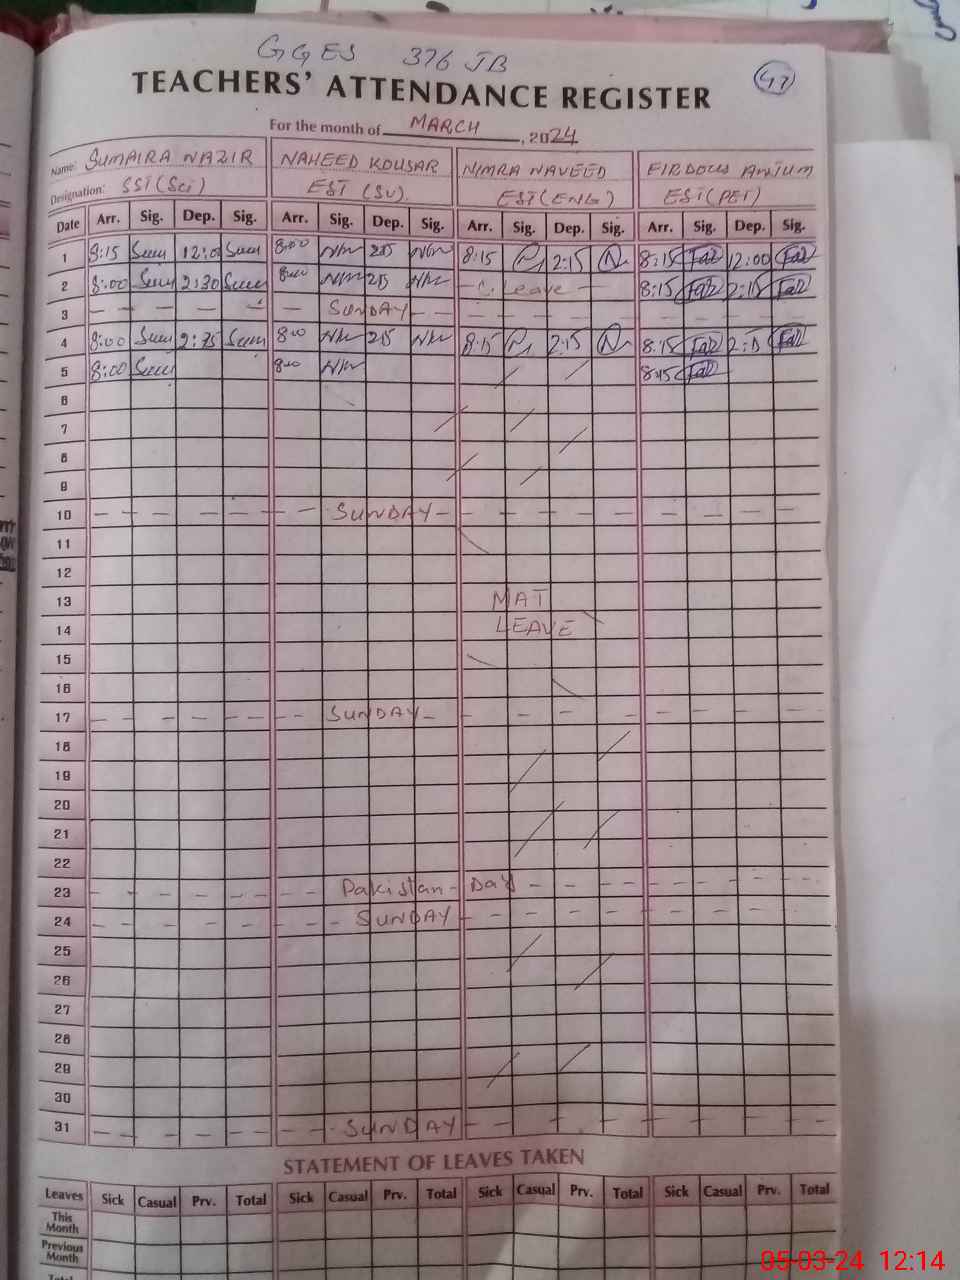 GGES 376 JB
47
TEACHERS' ATTENDANCE REGISTER
For the month of MARCH, 2024
Name: SUMAIRA NAZIR NAHEED KOUSAR NIMRA NAVEED FIRDOUS ANJUM
Designation: SST(Sci) EST (SV). EST(ENG) EST(PET)
Date Arr. Sig. Dep. Sig. Arr. Sig. Dep. Sig. Arr. Sig. Dep. Sig. Arr. Sig. Dep. Sig.
1 8:15 12:0 8:00 8:15 2:15 8:15 12:00
2 8:00 2:30 8:00 - C. Leave - 8:15 2:15
3 - - - - - SUNDAY - - - - - - - - -
4 8:00 8:00 8:15 2:15 8:15
5 8:00 8:00 8:15
6
7
8
9
10 - - - - - - SUNDAY - - - - - - - - -
11
12
13 MAT
14 LEAVE
15
16
17 - - - - - - SUNDAY - - - - - - - - -
18
19
20
21
22
23 - - - - - - Pakistan - Day - - - - - - -
24 - - - - - - SUNDAY - - - - - - - - -
25
26
27
28
29
30
31 - - - - - - SUNDAY - - - - - - - - -
STATEMENT OF LEAVES TAKEN
Leaves Sick Casual Prv. Total Sick Casual Prv. Total Sick Casual Prv. Total Sick Casual Prv. Total
This Month
Previous Month
Total
05-03-24 12:14